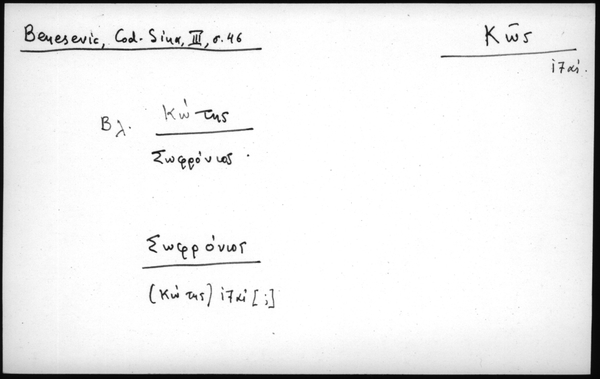 Benesevic, Cod. Sina, III, σ. 46
Κῶς
ιζ αἰ.
Βλ. Κώτης
Σωφρόνιος.
Σωφρόνιος
(Κώτης) ιζ αἰ [;]